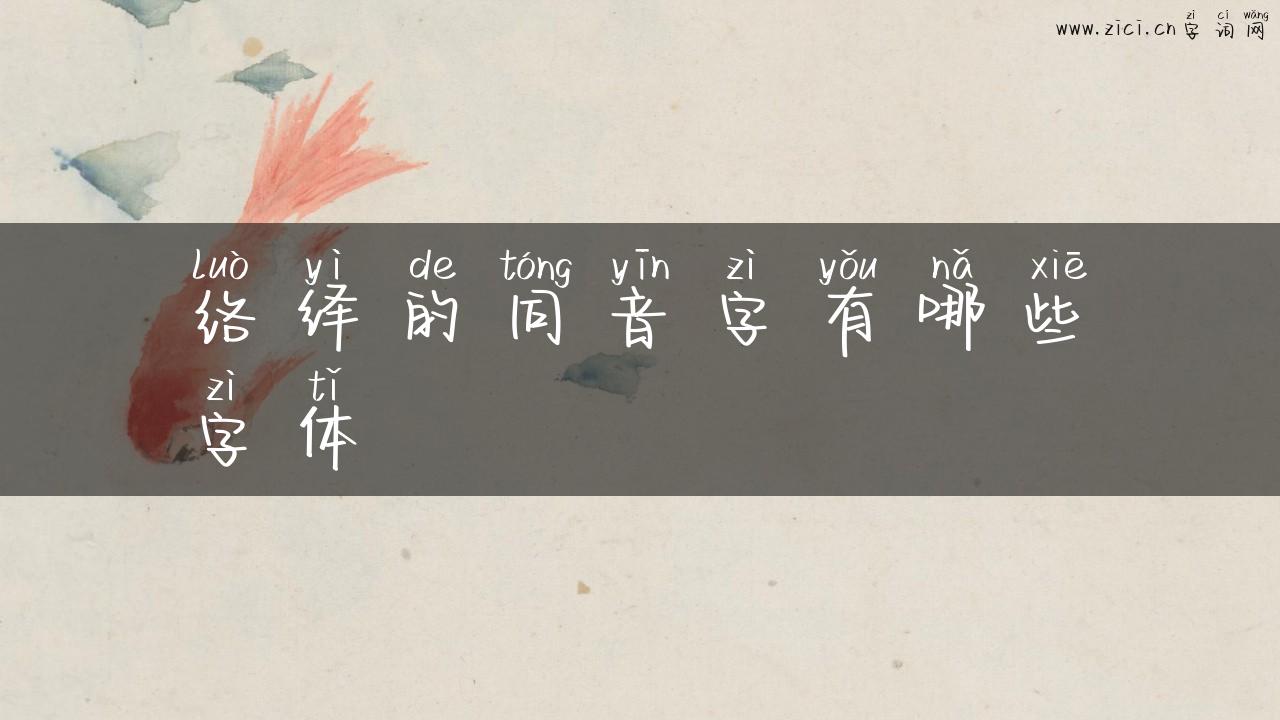 zì cí wǎng
www.zici.cn 字 词 网
luò yì de tóng yīn zì yǒu nǎ xiē
络 绎 的 同 音 字 有 哪 些
zì tǐ
字 体